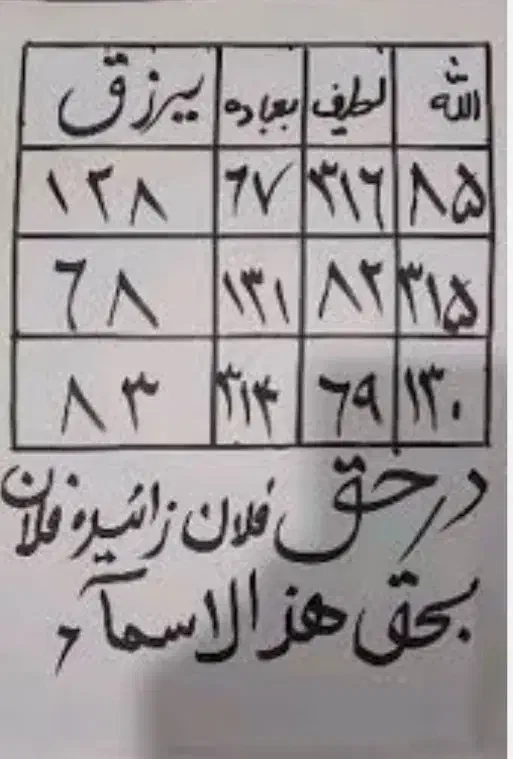 الله لطیف بعباده یرزق
۸۵ ۳۱۶ ۶۷ ۱۲۸
۳۱۵ ۸۲ ۱۳۱ ۶۸
۱۳۰ ۶۹ ۳۱۴ ۸۳
در حق فلان زائیده فلان
بحق هذالاسمآء